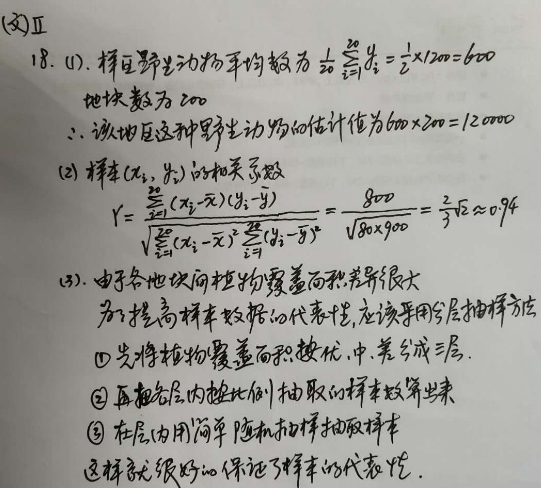 (文)Ⅱ
18. (1). 样区野生动物平均数为 \frac{1}{20} \sum_{i=1}^{20} y_i = \frac{1}{2}×1200=600
地块数为 200
∴ 该地区这种野生动物的估计值为 600×200=120000
(2) 样本(x_i, y_i)的相关系数
r = \frac{\sum_{i=1}^{20}(x_i-\bar{x})(y_i-\bar{y})}{\sqrt{\sum_{i=1}^{20}(x_i-\bar{x})^2 \sum_{i=1}^{20}(y_i-\bar{y})^2}} = \frac{800}{\sqrt{80×900}} = \frac{2}{3}\sqrt{2}≈0.94
(3). 由于各地块间植物覆盖面积差异很大
为了提高样本数据的代表性,应该采用分层抽样方法
① 先将植物覆盖面积按优、中、差分成三层.
② 再把各层内按比例抽取的样本数算出来
③ 在层内用简单随机抽样抽取样本
这样就很好的保证了样本的代表性.